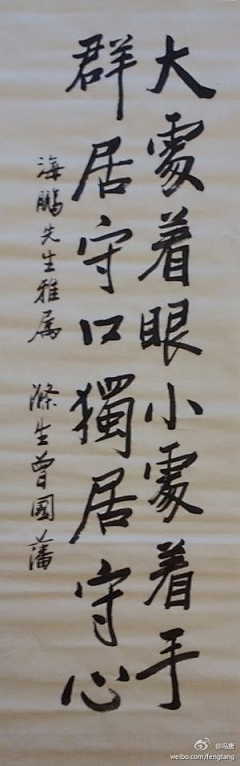 大處着眼小處着手
群居守口獨居守心
海鵬先生雅屬
滌生曾國藩
@冯唐
weibo.com/fengtang